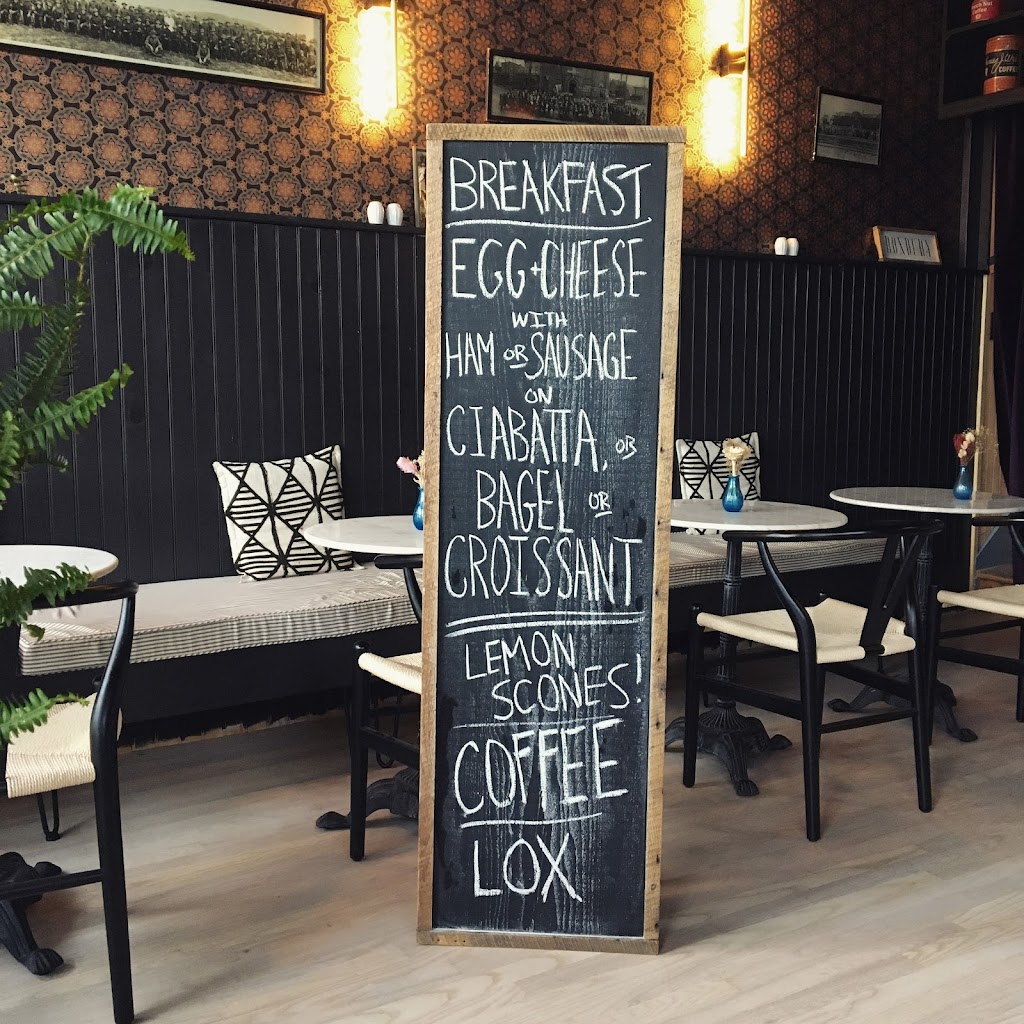 BREAKFAST
EGG + CHEESE
WITH
HAM OR SAUSAGE
ON
CIABATTA, OR
BAGEL OR
CROISSANT
LEMON
SCONES!
COFFEE
LOX
COFFEE